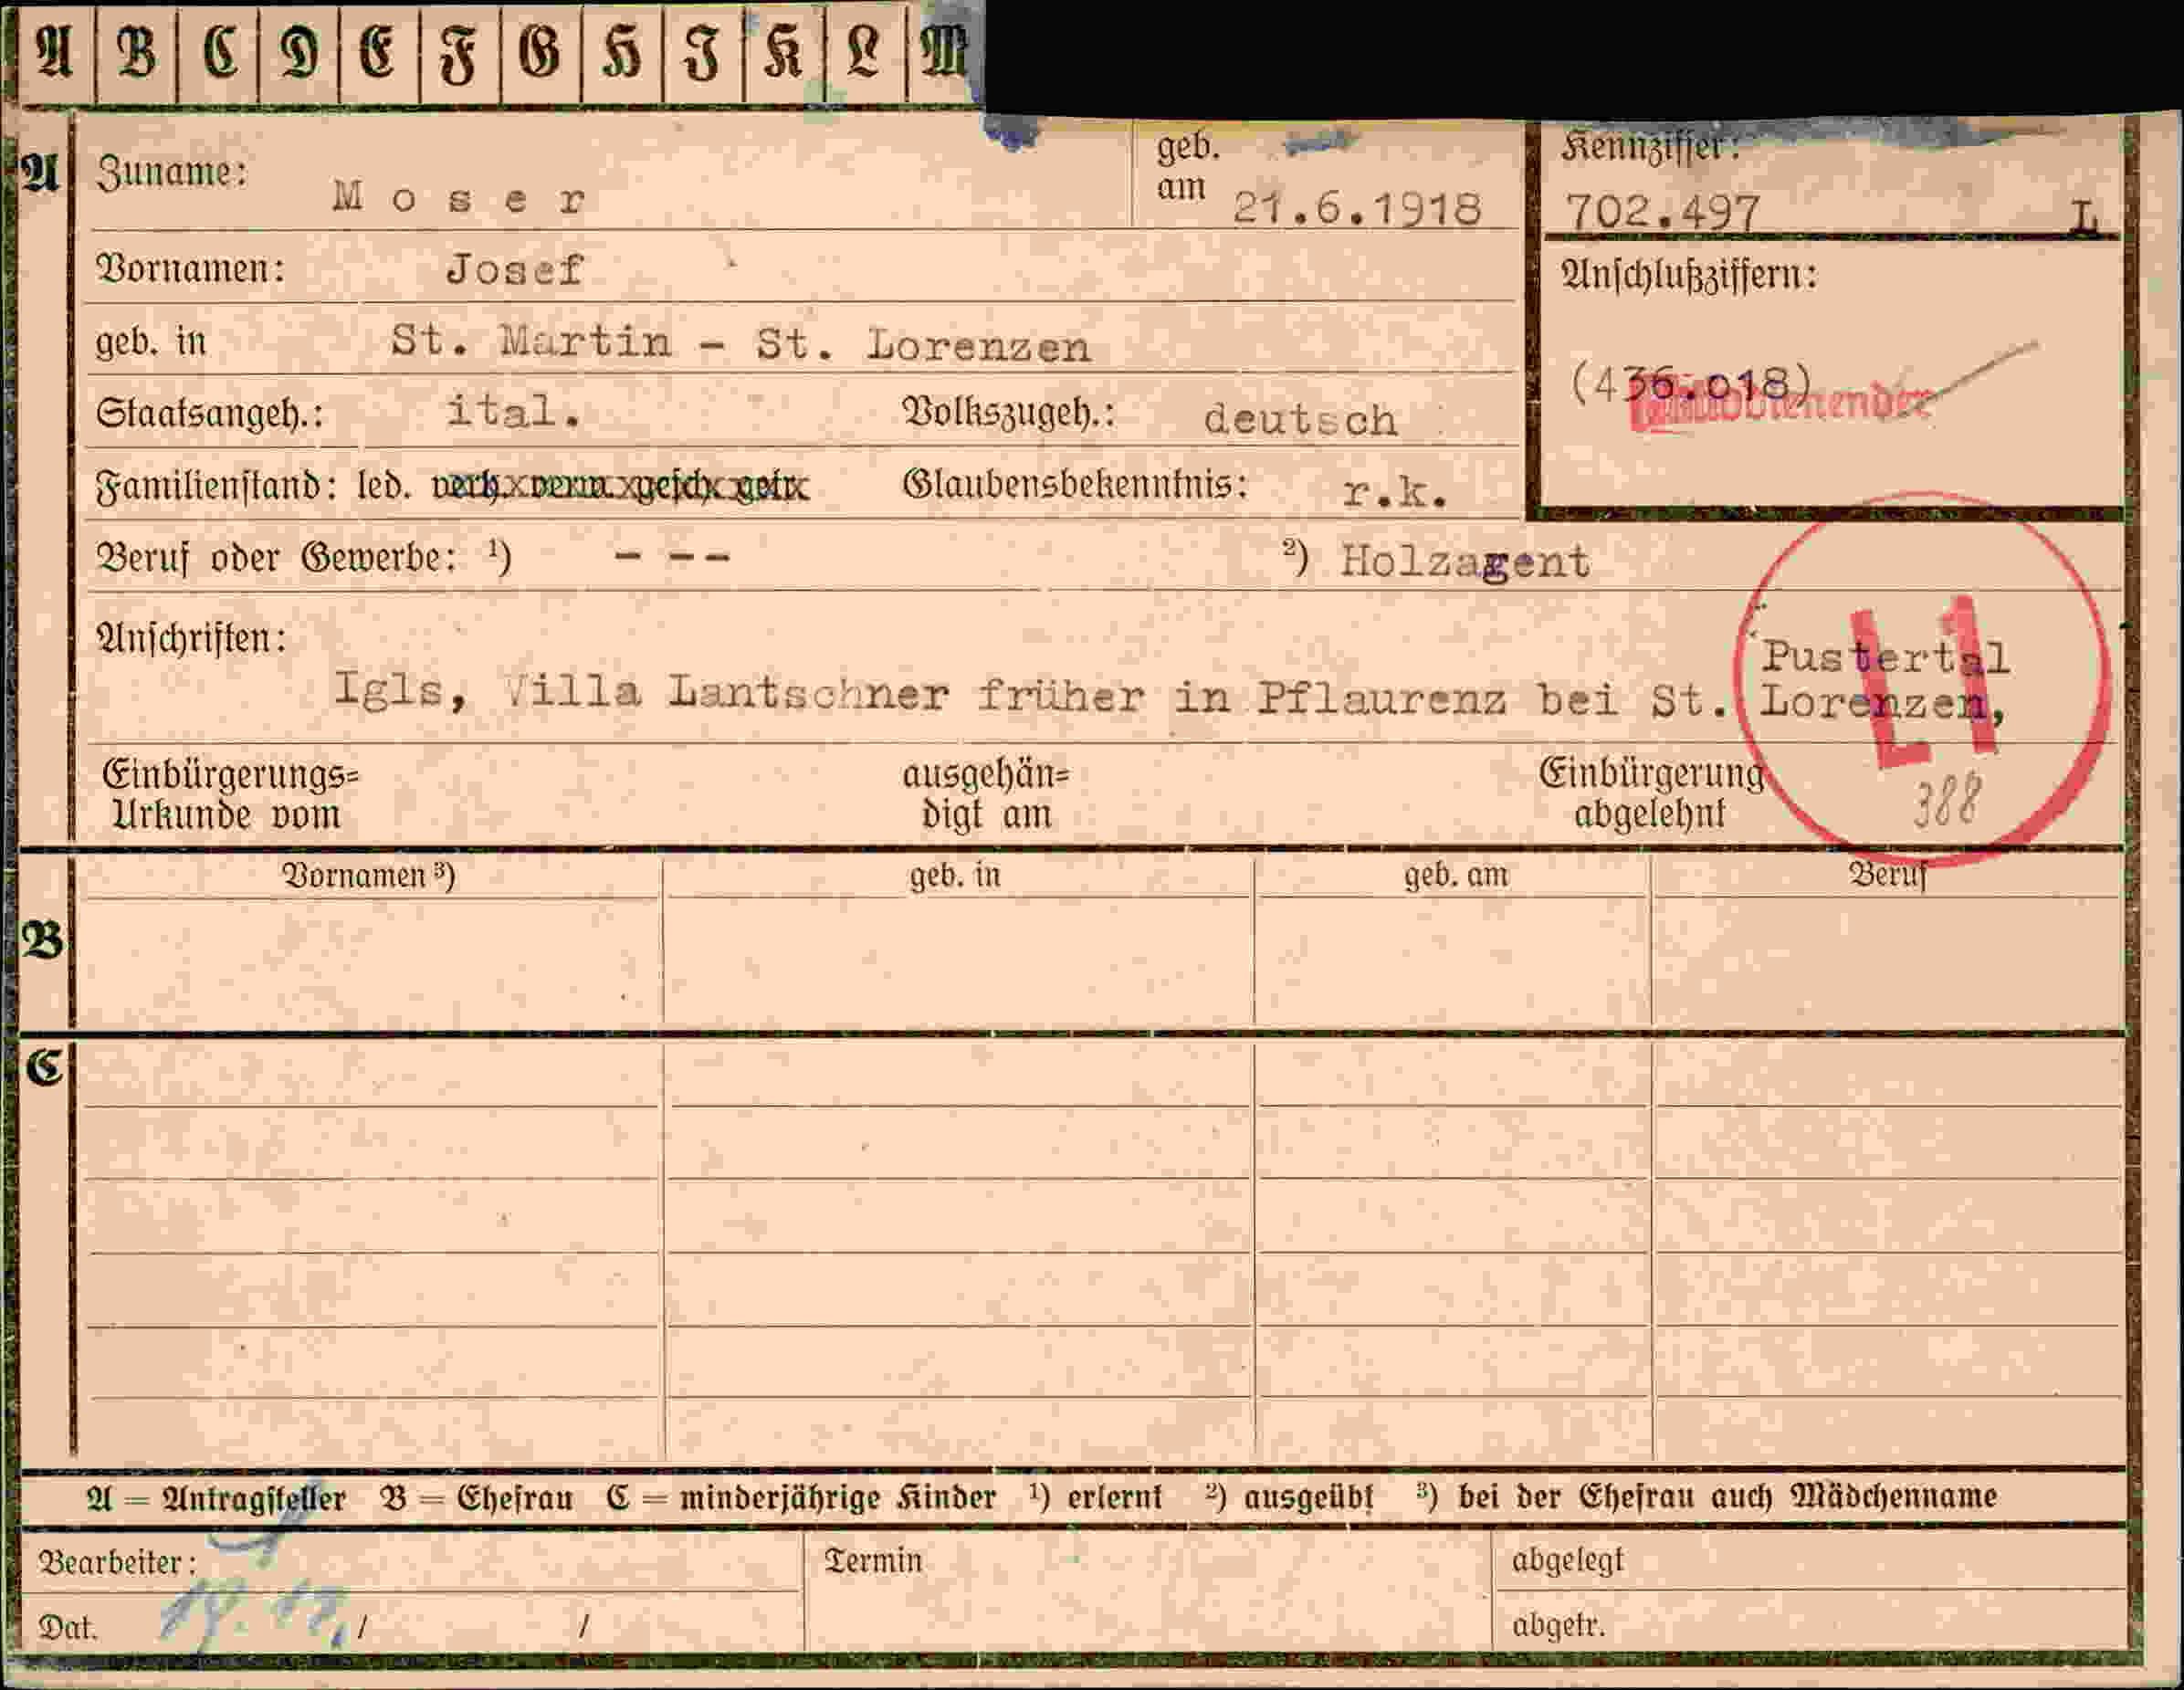 A B C D E F G H I K L M
A Zuname: Moser geb. am 21.6.1918
Kennziffer: 702.497 L
Vornamen: Josef
Anschlußziffern:
geb. in St. Martin - St. Lorenzen
(436.018)
Staatsangeh.: ital. Volkszugeh.: deutsch
Familienstand: led. verh. verw. gesch. getr. Glaubensbekenntnis: r.k.
Beruf oder Gewerbe: ¹) - -- ²) Holzagent
L1
Anschriften: Pustertal
Igls, Villa Lantschner früher in Pflaurenz bei St. Lorenzen,
Einbürgerungs= ausgehän= Einbürgerung
Urkunde vom digt am abgelehnt 388
Vornamen ³) geb. in geb. am Beruf
B
C
A = Antragsteller B = Ehefrau C = minderjährige Kinder ¹) erlernt ²) ausgeübt ³) bei der Ehefrau auch Mädchenname
Bearbeiter: Termin abgelegt
Dat. / / abgetr.